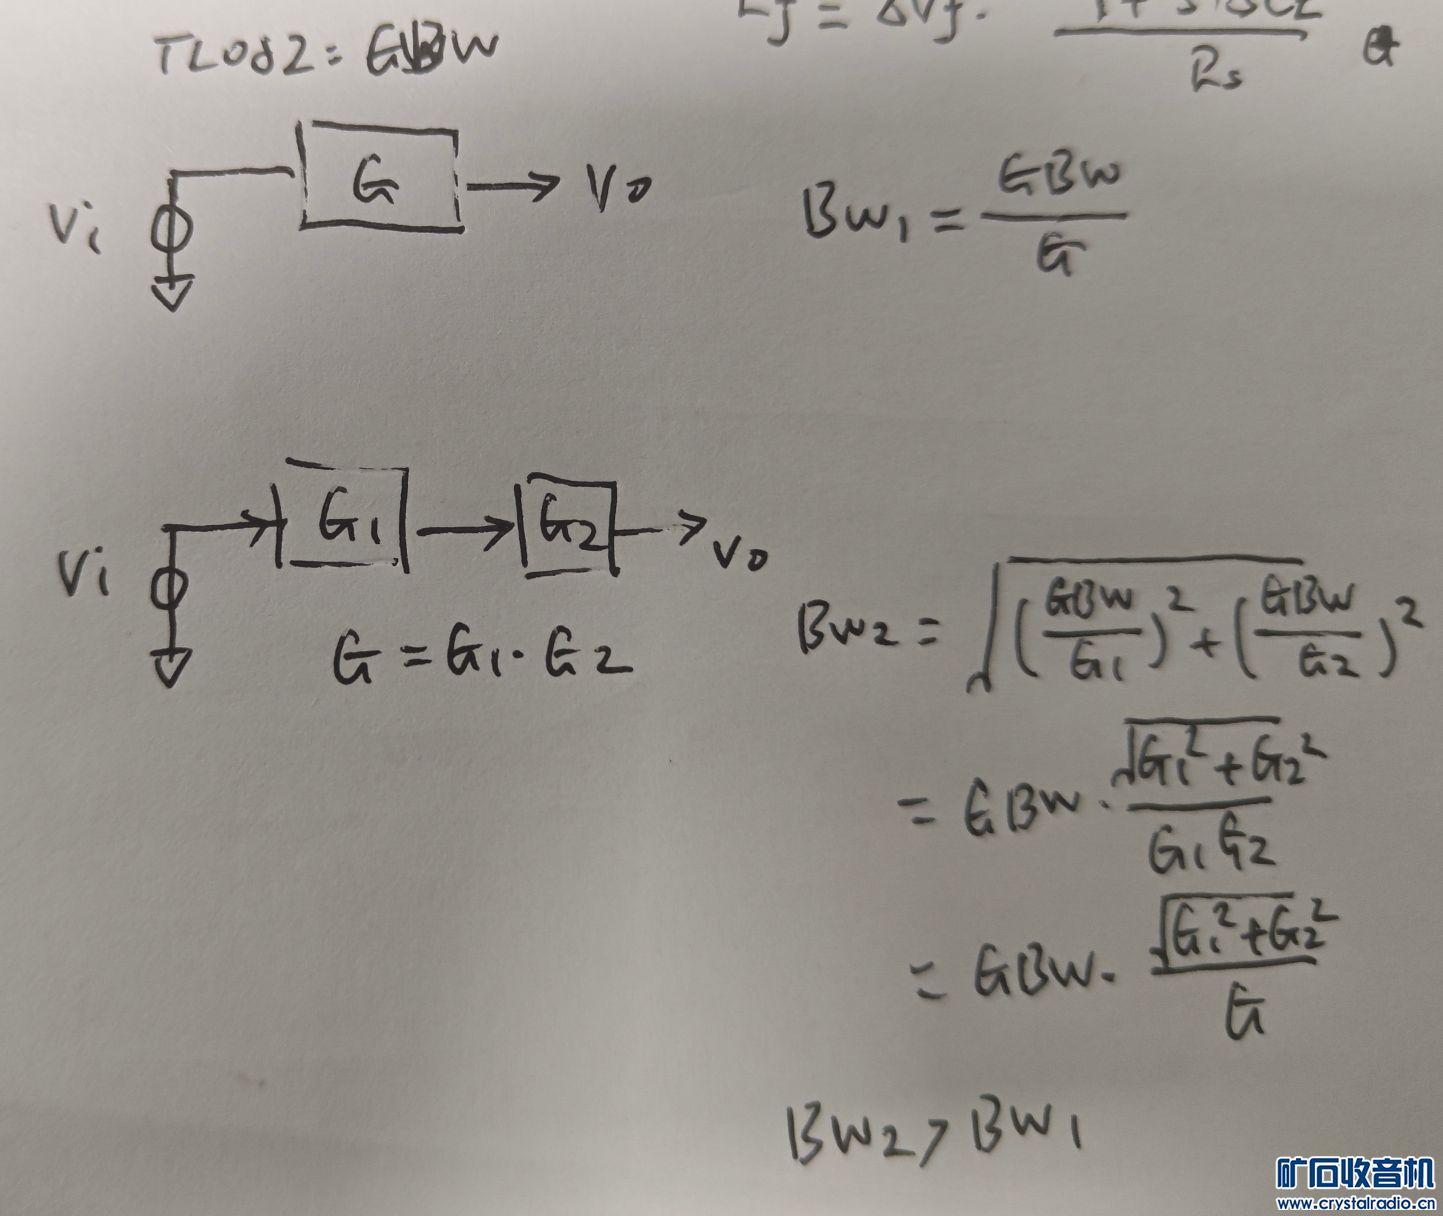 TL082 = GBW
Vi G → Vo
BW1 = GBW / G
Vi G1 → G2 → Vo
G = G1 · G2
BW2 = √((GBW/G1)² + (GBW/G2)²)
= GBW · √(G1² + G2²) / G1G2
= GBW · √(G1² + G2²) / G
BW2 > BW1
矿石收音机
www.crystalradio.cn